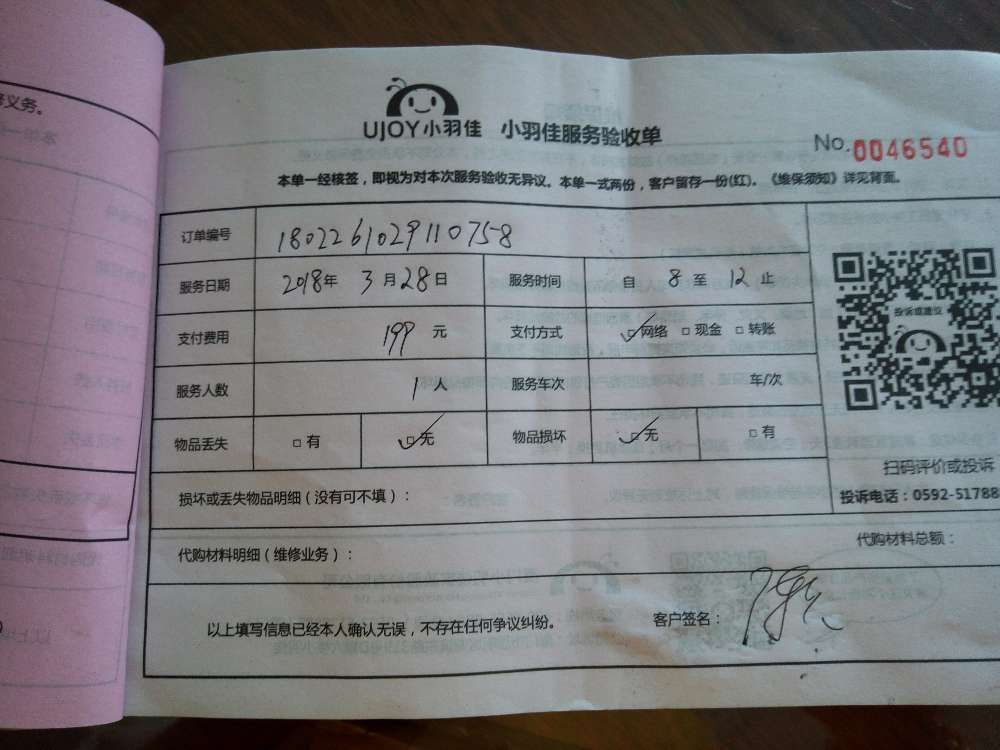 务。
UJOY小羽佳 小羽佳服务验收单
No.0046540
本单一经核签，即视为对本次服务验收无异议。本单一式两份，客户留存一份(红)。《维保须知》详见背面。
订单编号 1802261029110758
服务日期 2018年 3月28日 服务时间 自 8 至 12 止
支付费用 199 元 支付方式 ☑网络 □现金 □转账
服务人数 1人 服务车次 车/次
物品丢失 □有 ☑无 物品损坏 ☑无 □有
投诉或建议
扫码评价或投诉
投诉电话：0592-51788
损坏或丢失物品明细（没有可不填）：
代购材料明细（维修业务）： 代购材料总额：
以上填写信息已经本人确认无误，不存在任何争议纠纷。 客户签名：